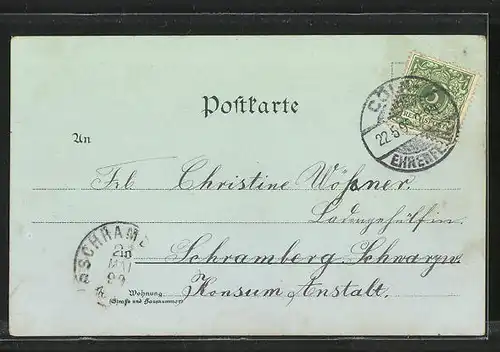 Postkarte
CÖLN
EHRENF
22.5.
5
An
Frl. Christine Wößner.
Ladengehülfin.
SCHRAMB
in
Schramberg. Schwarzw.
MAI
99
Konsum Anstalt.
Wohnung
(Straße und Hausnummer)